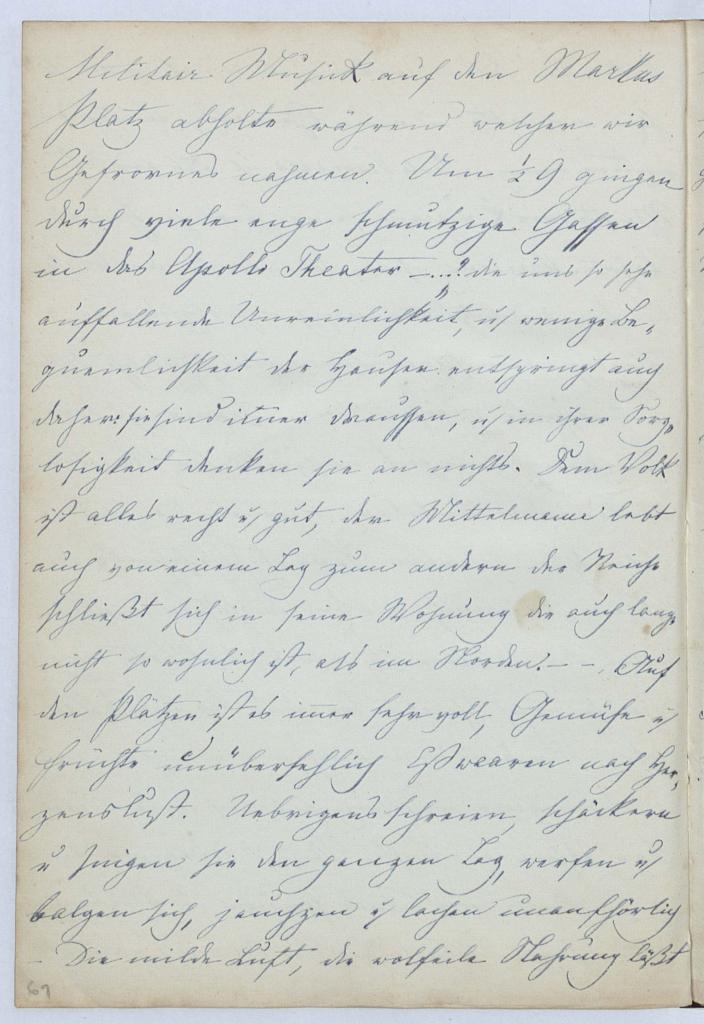 Militair Musick auf den Markus
Platz abholte während welcher wir
Gefrornes nahmen. Um ½ 9 gingen
durch viele enge schmutzige Gassen
in das Apollo Theater – ...? die uns so sehr
auffallende Unreinlichkeit, u wenige Be„
quemlichkeit der Häuser entspringt auch
daher: sie sind immer draussen, u in ihrer Sorg„
losigkeit denken sie an nichts. Dem Volk
ist alles recht u gut, der Mittelmann lebt
auch von einem Tag zum andern der Reiche
schließt sich in seine Wohnung die auch lang„
nicht so wohnlich ist, als im Norden. – – Auf
den Plätzen ist es immer sehr voll, Gemüse u
Früchte unübersehlich Eßwaaren nach Her„
zenslust. Uebrigens schreien, schäckern
u singen sie den ganzen Tag, werfen u
balgen sich, jauchzen u lachen unaufhörlich
– Die milde Luft, die wolfeile Nahrung läßt
69